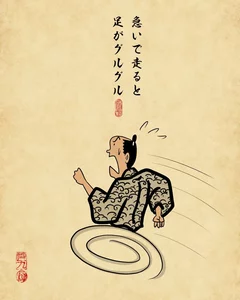 急いで走ると
足がグルグル